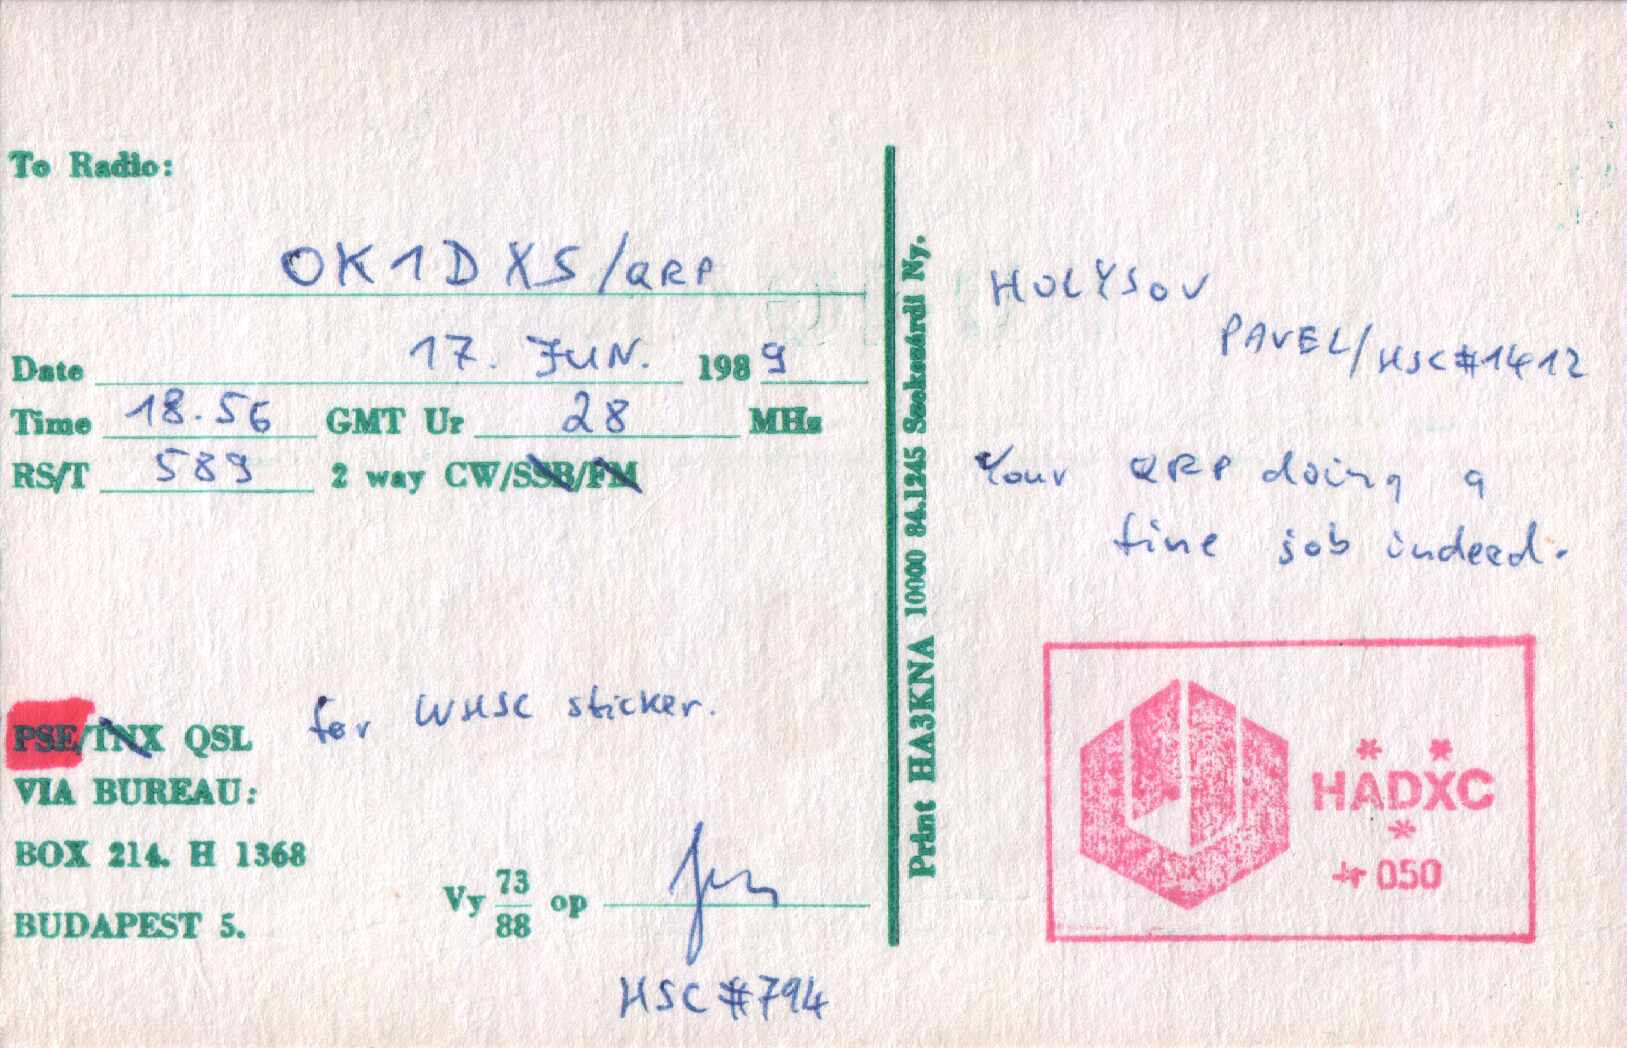 To Radio:
OK1DXS/QRP
Date 17. JUN. 1989
Time 18.56 GMT Ur 28 MHz
RS/T 589 2 way CW/SSB/FM
PSE/TNX QSL for WHSC sticker.
VIA BUREAU:
BOX 214. H 1368
BUDAPEST 5.
Vy 73/88 op
HSC #794
Print HA3KNA 10000 84.1245 Szekszárdi Ny.
HOLYSOV
PAVEL/HSC#1412
Your QRP doing a
fine job indeed.
* *
HADXC
*
050